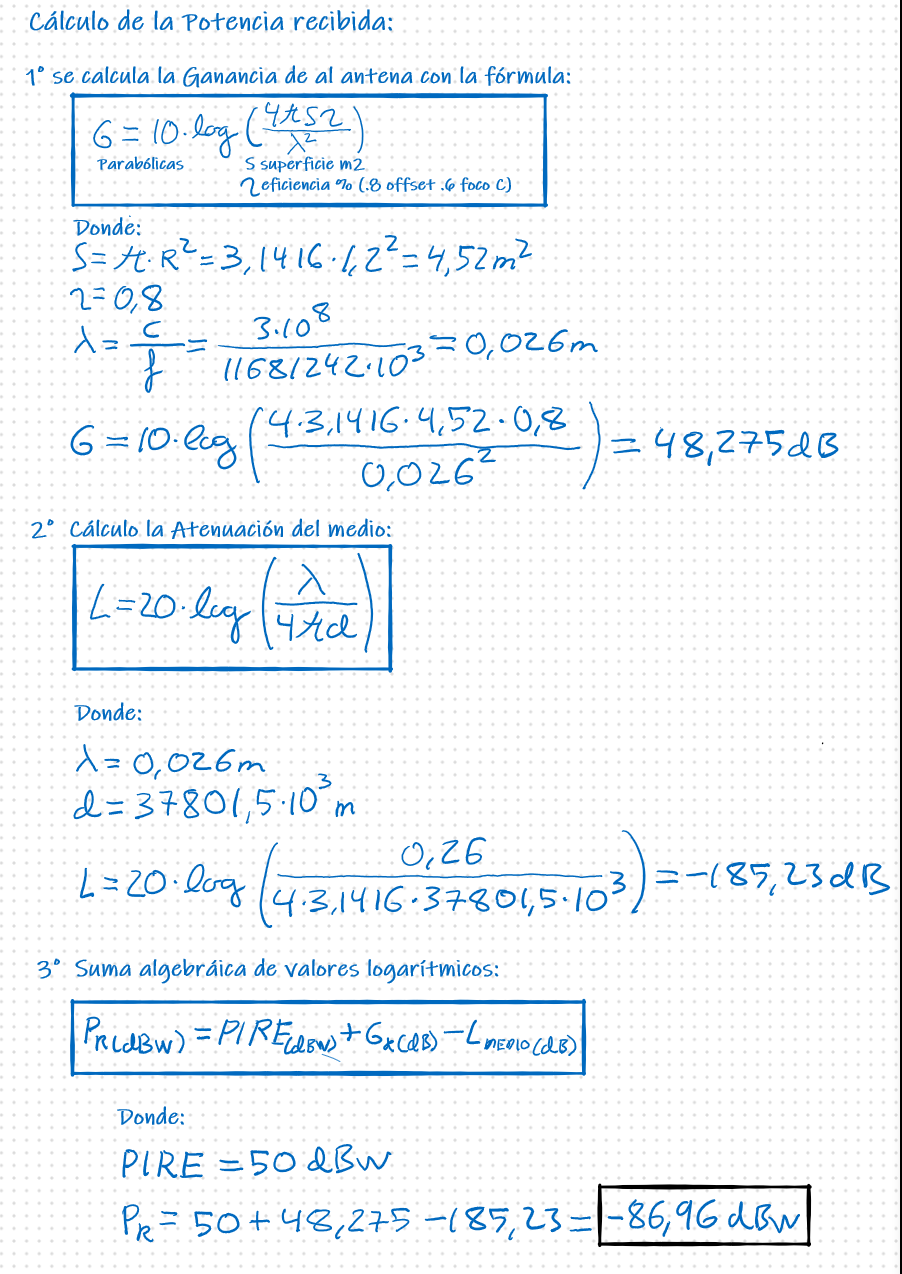 Cálculo de la Potencia recibida:
1° se calcula la Ganancia de al antena con la fórmula:
G = 10·log(4πSη/λ²)
Parabólicas S superficie m2
η eficiencia % (.8 offset .6 foco C)
Donde:
S = π·R² = 3,1416·1,2² = 4,52 m²
η = 0,8
λ = c/f = 3·10⁸/11681242·10³ = 0,026m
G = 10·log(4·3,1416·4,52·0,8/0,026²) = 48,275dB
2° Cálculo la Atenuación del medio:
L = 20·log(λ/4πd)
Donde:
λ = 0,026m
d = 37801,5·10³ m
L = 20·log(0,26/4·3,1416·37801,5·10³) = -185,23dB
3° Suma algebráica de valores logarítmicos:
PR(dBW) = PIRE(dBW) + GR(dB) - LMEDIO(dB)
Donde:
PIRE = 50 dBW
PR = 50 + 48,275 - 185,23 = -86,96 dBW